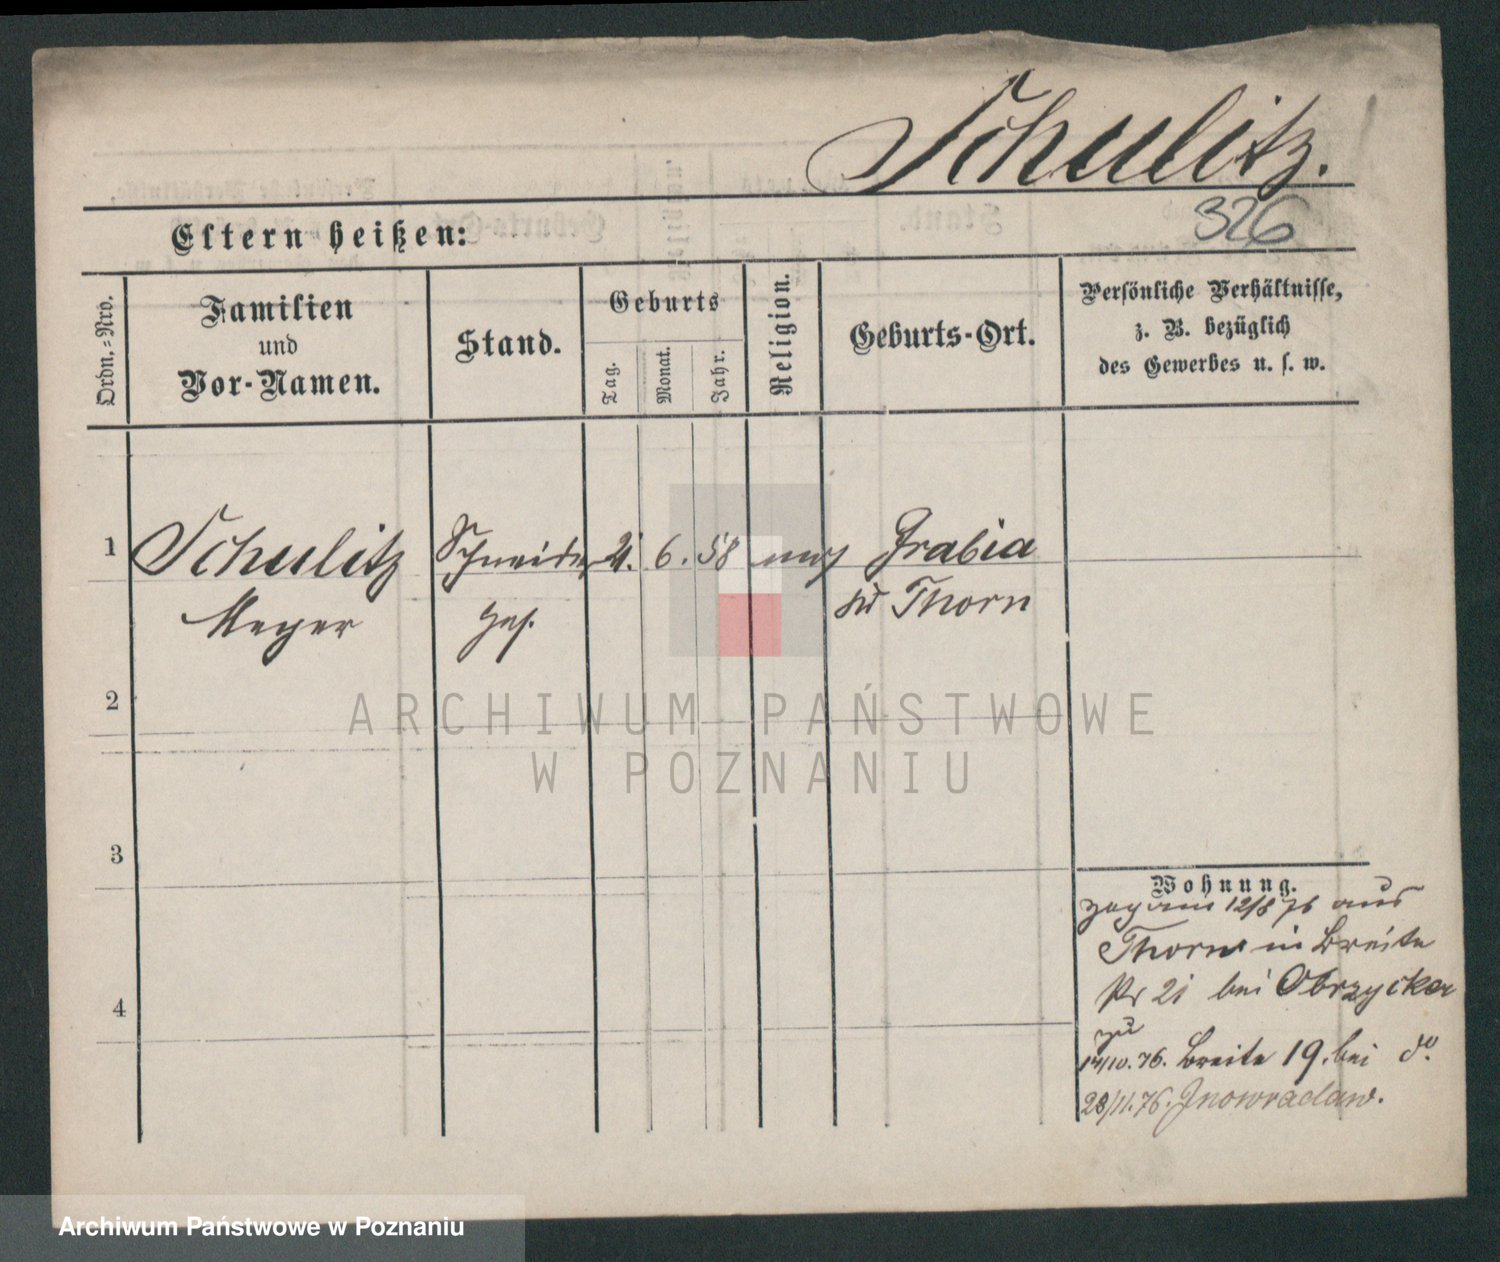 Schulitz.
326
Eltern heißen:
Ordn.-Nro.
Familien
und
Vor-Namen.
Stand.
Geburts
Tag.
Monat.
Jahr.
Religion.
Geburts-Ort.
Persönliche Verhältnisse,
z. B. bezüglich
des Gewerbes u. s. w.
1 Schulitz Schneider 6. 58 mos Grabia
Meyer Ges. Thorn
2
3
4
Wohnung.
zog am 12/8 76 aus
Thorn in Breite
Nr 21 bei Obrzycker
zu
14/10. 76. Breite 19. bei do.
28/11. 76. Inowraclaw.
ARCHIWUM PAŃSTWOWE
W POZNANIU
Archiwum Państwowe w Poznaniu